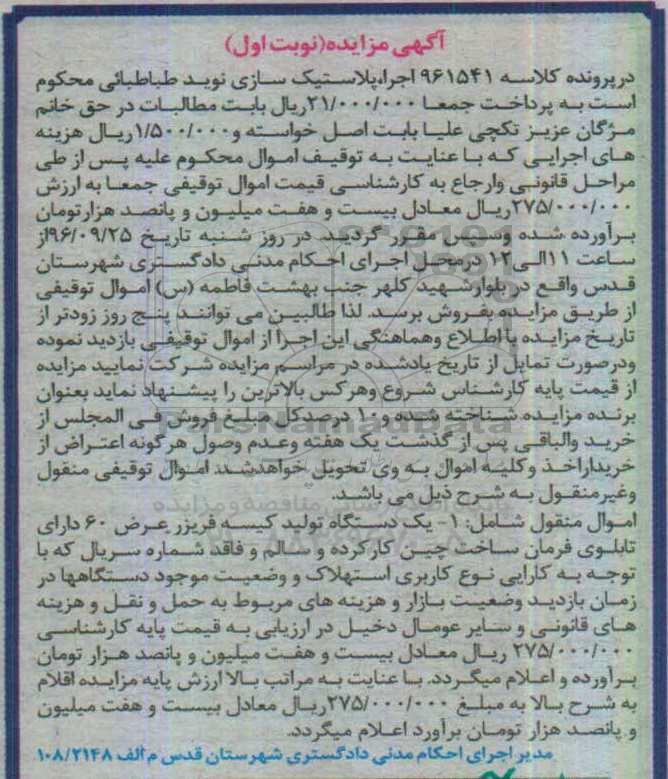 آگهی مزایده(نوبت اول)
درپرونده کلاسه ۹۶۱۵۴۱ اجرا،پلاستیک سازی نوید طباطبائی محکوم
است به پرداخت جمعا ۲۱/۰۰۰/۰۰۰ریال بابت مطالبات در حق خانم
مژگان عزیز تکچی علیا بابت اصل خواسته و۱/۵۰۰/۰۰۰ریال هزینه
های اجرایی که با عنایت به توقیف اموال محکوم علیه پس از طی
مراحل قانونی وارجاع به کارشناسی قیمت اموال توقیفی جمعا به ارزش
۲۷۵/۰۰۰/۰۰۰ریال معادل بیست و هفت میلیون و پانصد هزارتومان
برآورده شده وسپس مقرر گردید در روز شنبه تاریخ ۹۶/۰۹/۲۵از
ساعت ۱۱الی۱۲درمحل اجرای احکام مدنی دادگستری شهرستان
قدس واقع در بلوارشهید کلهر جنب بهشت فاطمه (س) اموال توقیفی
از طریق مزایده بفروش برسد. لذا طالبین می توانند پنج روز زودتر از
تاریخ مزایده بااطلاع وهماهنگی این اجرا از اموال توقیفی بازدید نموده
ودرصورت تمایل از تاریخ یادشده در مراسم مزایده شرکت نمایید مزایده
از قیمت پایه کارشناس شروع وهرکس بالاترین را پیشنهاد نماید بعنوان
برنده مزایده شناخته شده و۱۰ درصدکل مبلغ فروش فی المجلس از
خرید والباقی پس از گذشت یک هفته وعدم وصول هرگونه اعتراض از
خریداراخذ وکلیه اموال به وی تحویل خواهدشد اموال توقیفی منقول
وغیرمنقول به شرح ذیل می باشد.
اموال منقول شامل: ۱- یک دستگاه تولید کیسه فریزر عرض ۶۰ دارای
تابلوی فرمان ساخت چین کارکرده و سالم و فاقد شماره سریال که با
توجه به کارایی نوع کاربری استهلاک و وضعیت موجود دستگاهها در
زمان بازدید وضعیت بازار و هزینه های مربوط به حمل و نقل و هزینه
های قانونی و سایر عومال دخیل در ارزیابی به قیمت پایه کارشناسی
۲۷۵/۰۰۰/۰۰۰ ریال معادل بیست و هفت میلیون و پانصد هزار تومان
برآورده و اعلام میگردد. با عنایت به مراتب بالا ارزش پایه مزایده اقلام
به شرح بالا به مبلغ ۲۷۵/۰۰۰/۰۰۰ریال معادل بیست و هفت میلیون
و پانصد هزار تومان برآورد اعلام میگردد.
مدیر اجرای احکام مدنی دادگستری شهرستان قدس م الف ۱۰۸/۲۱۴۸
ParsNamadData